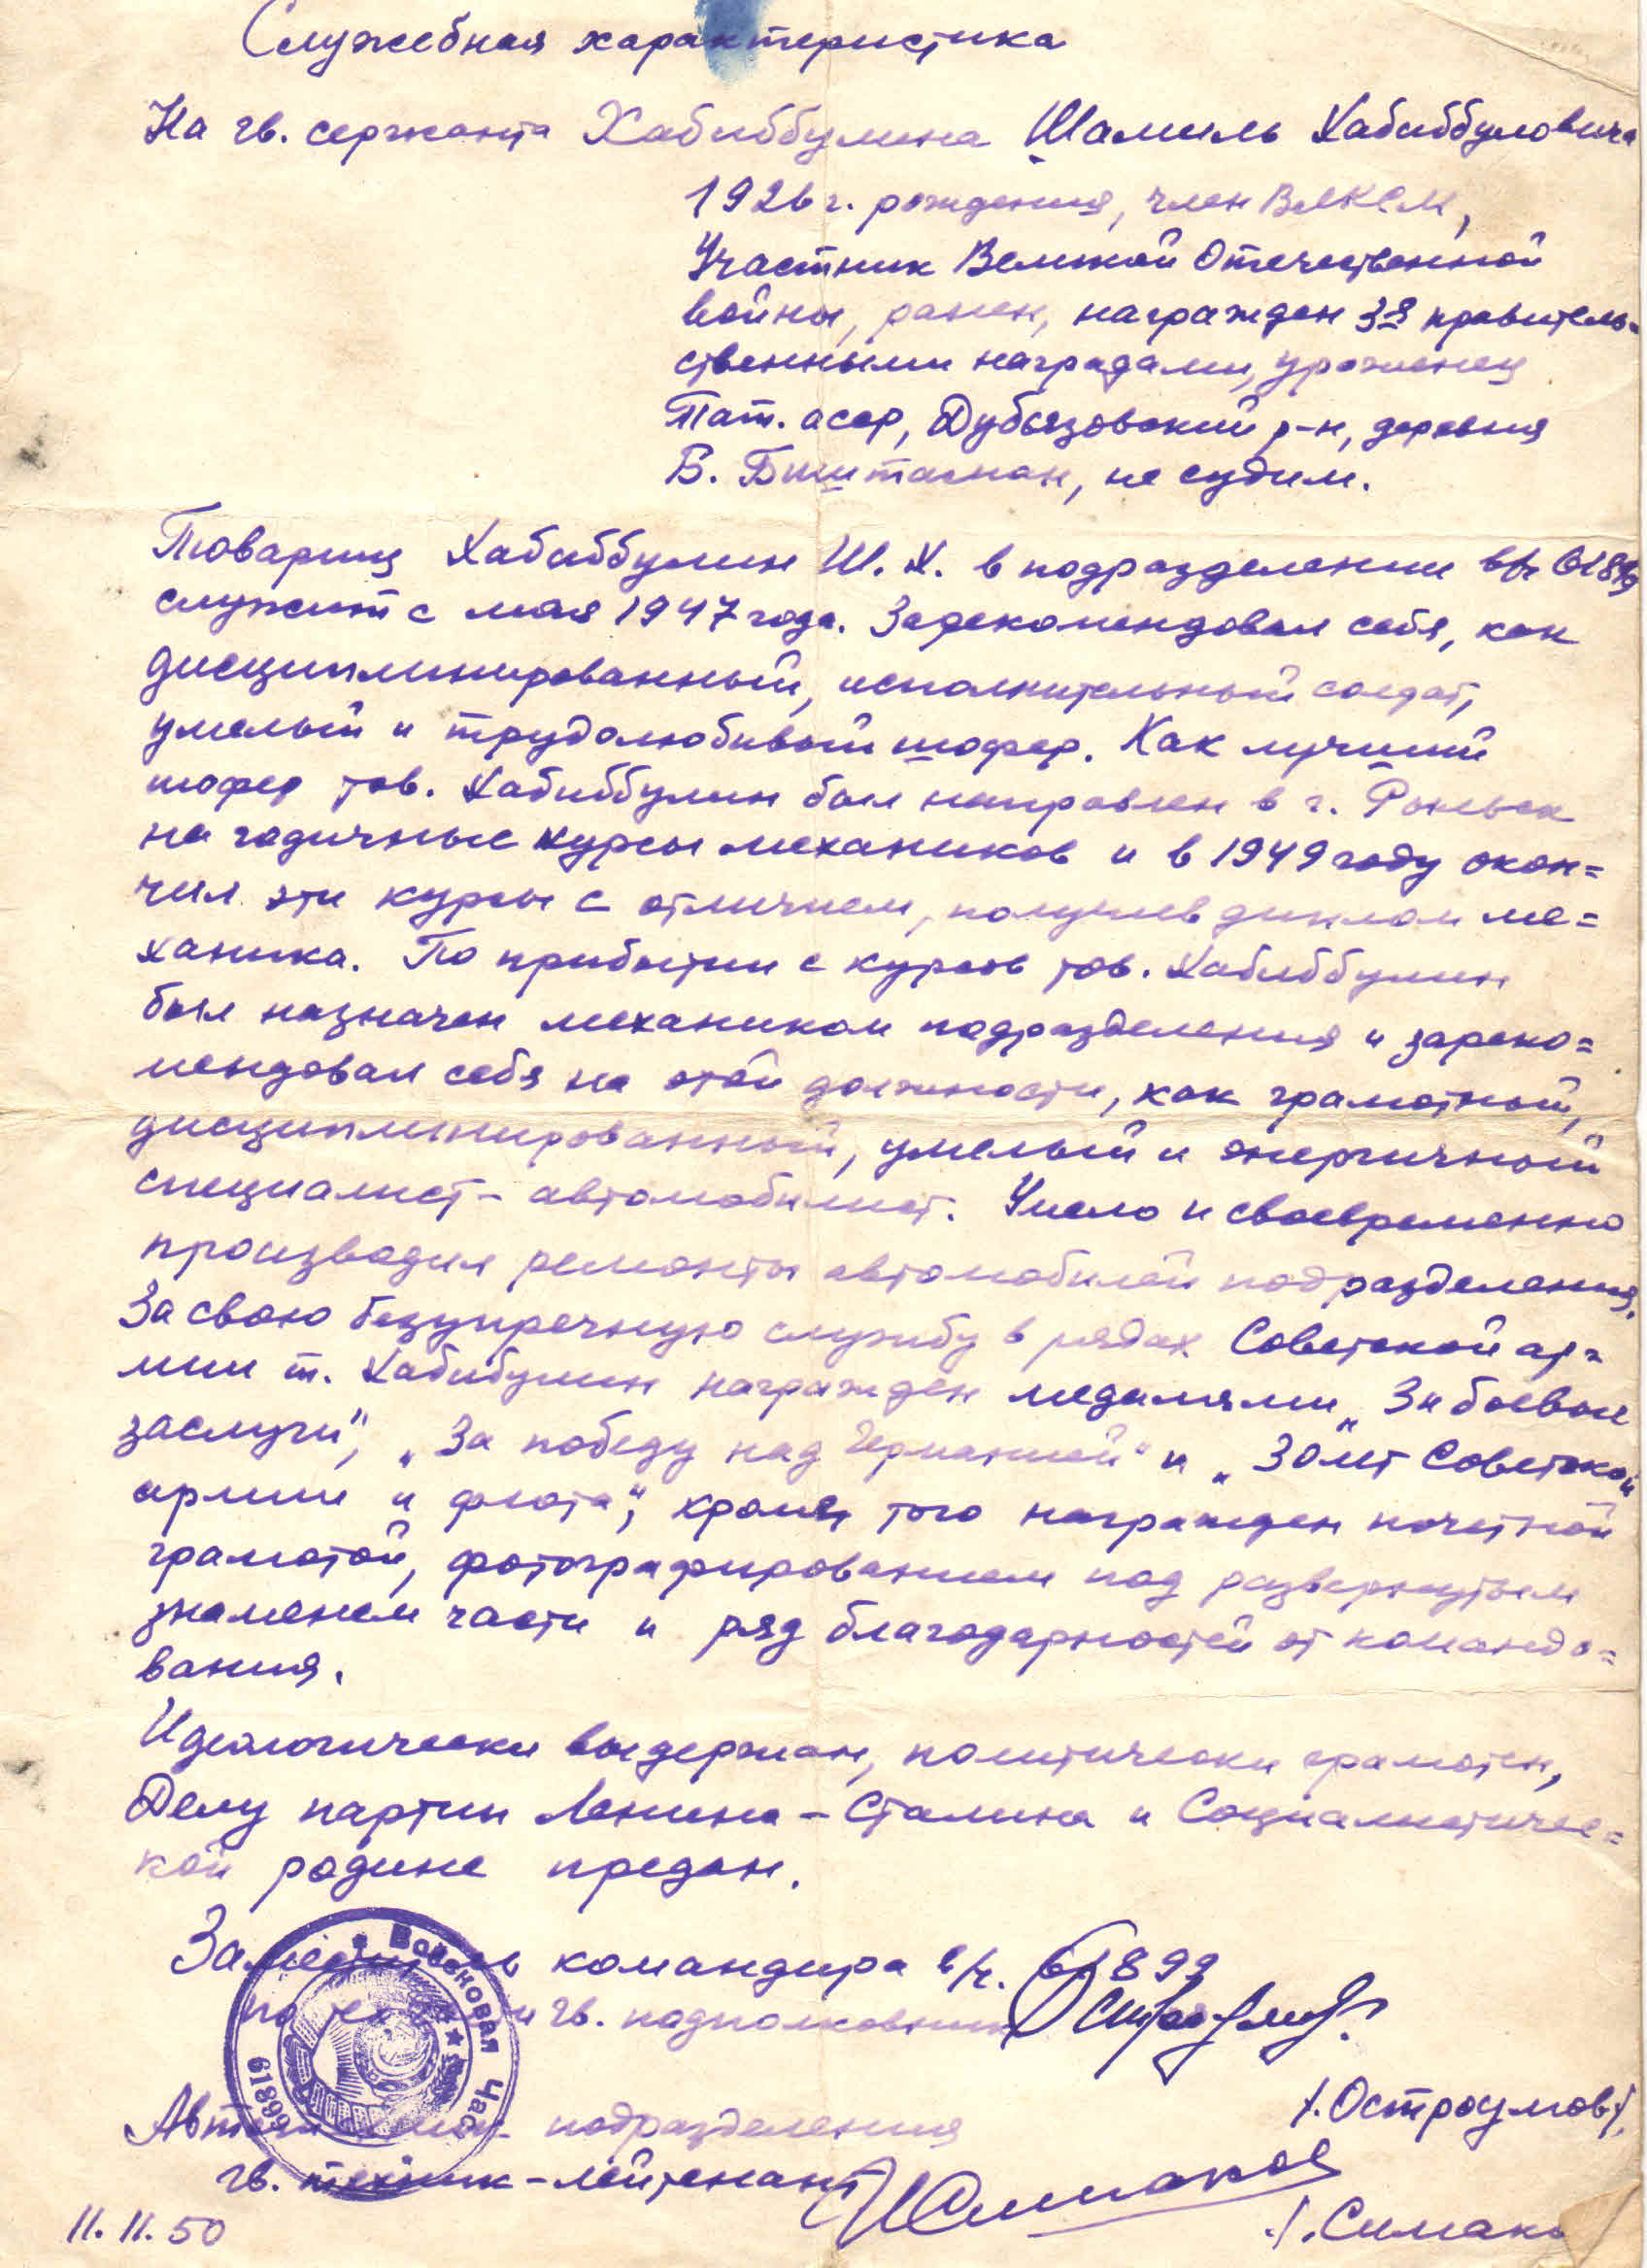 Служебная характеристика
На гв. сержанта Хабиббулина Шамиль Хабиббуловича
1926 г. рождения, член ВЛКСМ,
Участник Великой Отечественной
войны, ранен, награжден 3-я правитель-
ственными наградами, уроженец
Тат. асср, Дубъязовский р-н, деревня
Б. Биштагнан, не судим.
Товарищ Хабиббулин Ш. Х. в подразделении в/ч 61899
служит с мая 1947 года. Зарекомендовал себя, как
дисциплинированный, исполнительный солдат,
умелый и трудолюбивый шофер. Как лучший
шофер тов. Хабиббулин был направлен в г.
на годичные курсы механиков и в 1949 году окон=
чил эти курсы с отличием, получив диплом ме=
ханика. По прибытии с курсов тов. Хабиббулин
был назначен механиком подразделения и зареко=
мендовал себя на этой должности, как грамотный,
дисциплинированный, умелый и энергичный
специалист - автомобилист. Умело и своевременно
производил ремонты автомобилей подразделения.
За свою безупречную службу в рядах Советской ар=
мии т. Хабибулин награжден медалями „За боевые
заслуги", „За победу над Германией" и „30 лет Советской
армии и флота"; кроме того награжден почетной
грамотой, фотографированием под развернутым
знаменем части и ряд благодарностей от командо=
вания.
Идеологически выдержан, политически грамотен,
Делу партии Ленина - Сталина и Социалистичес=
кой родине предан.
Заместитель командира в/ч. 61899
по тех. части гв. подполковник
/.Остроумов/.
Автотехник подразделения
гв. техник - лейтенант
/.Симако
11.11.50
Войсковая Часть
61899